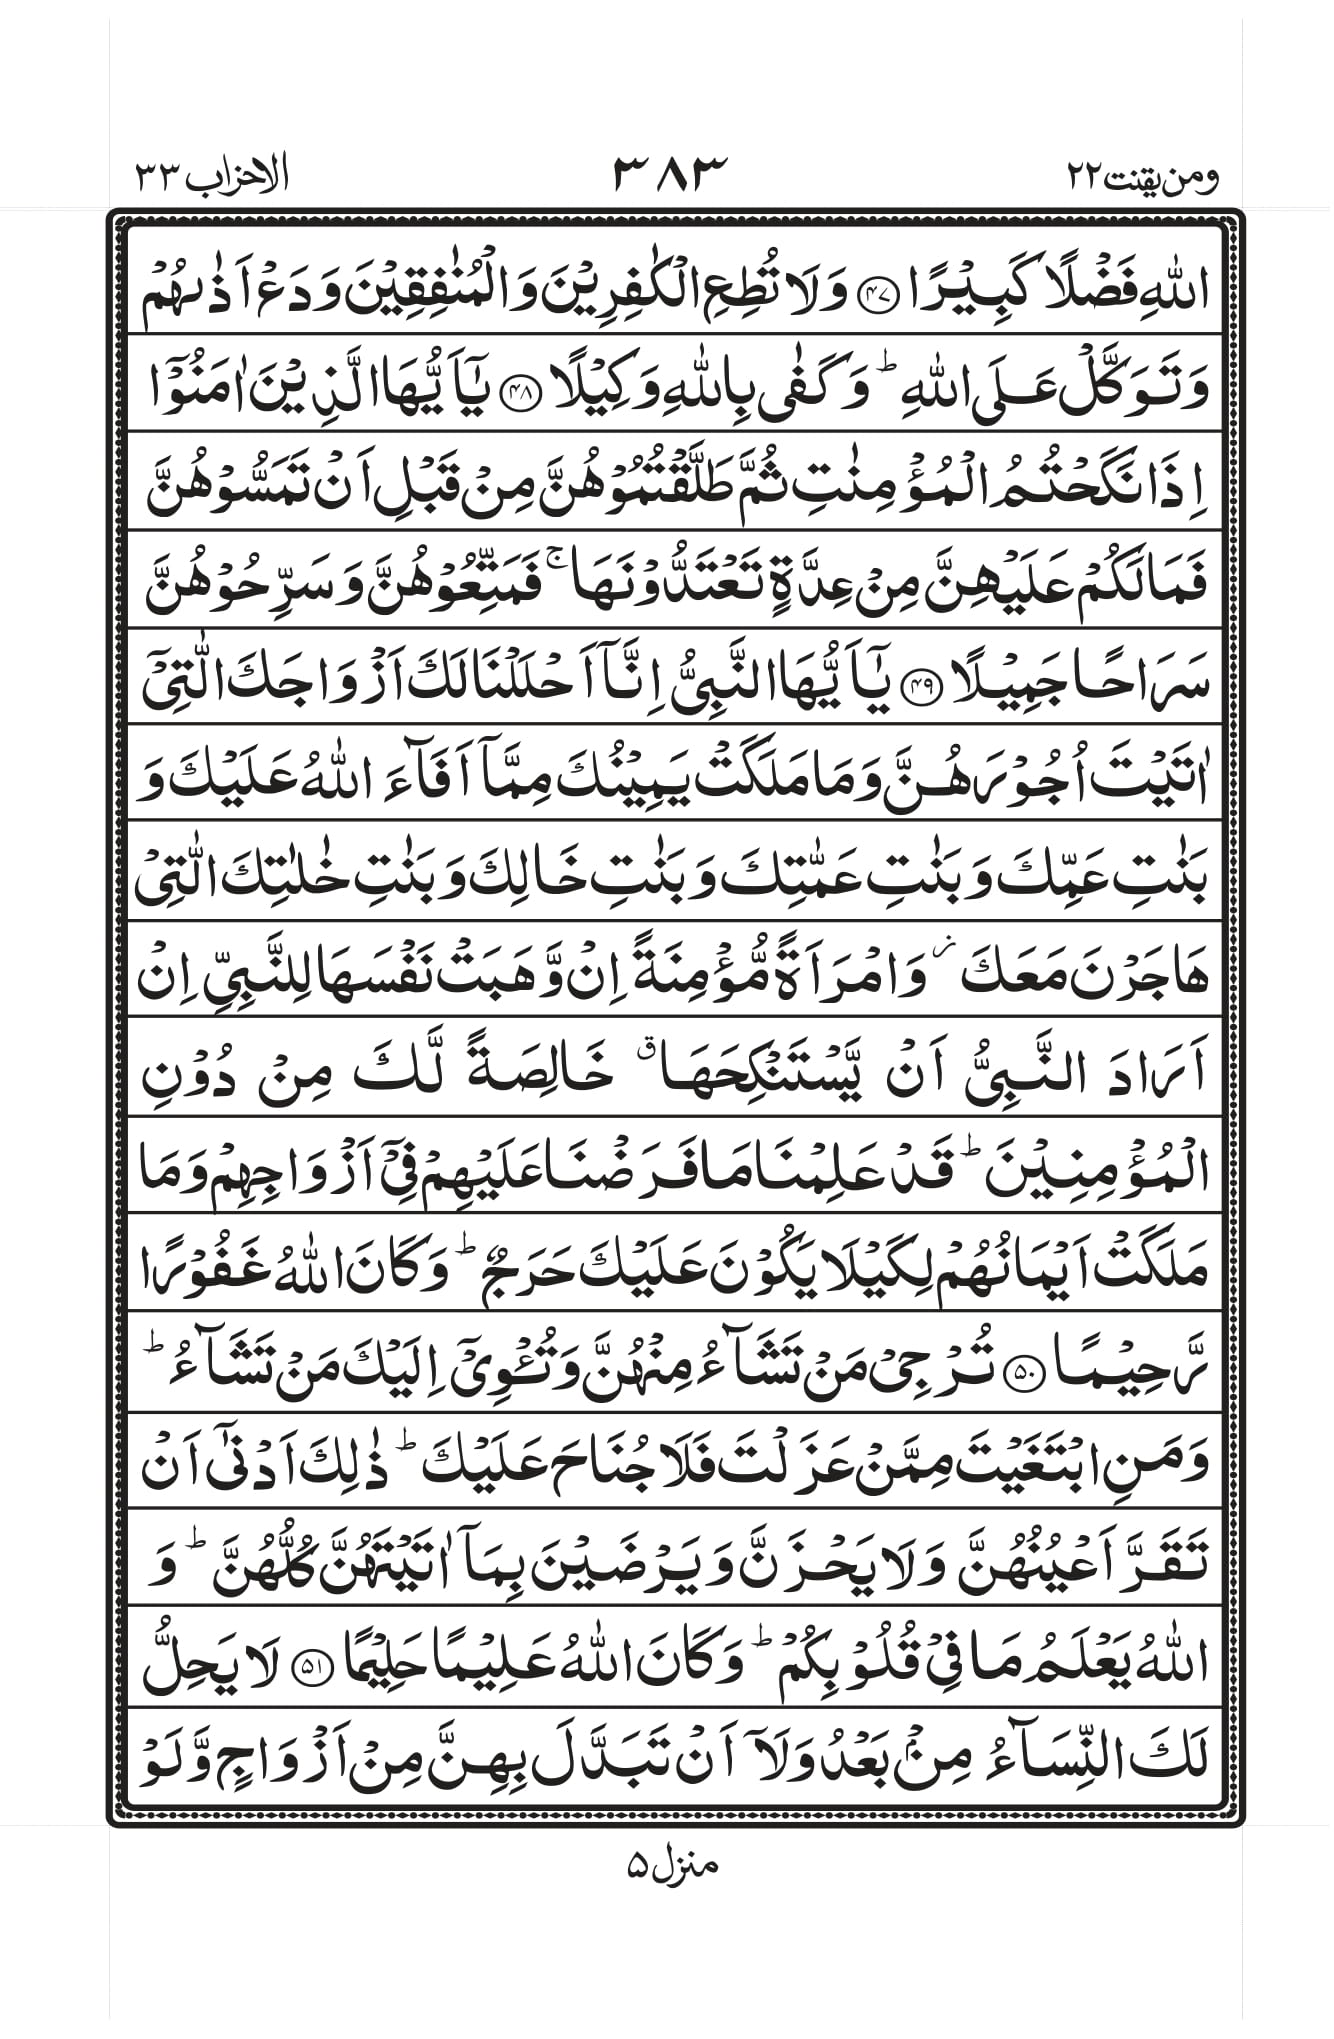 ومن يقنت ۲۲
۳۸۳
الاحزاب ۳۳
اللّٰهِ فَضْلًا كَبِيْرًا ﴿۴۷﴾ وَلَا تُطِعِ الْكٰفِرِيْنَ وَالْمُنٰفِقِيْنَ وَدَعْ اَذٰىهُمْ
وَتَوَكَّلْ عَلَى اللّٰهِ ؕ وَكَفٰى بِاللّٰهِ وَكِيْلًا ﴿۴۸﴾ يٰۤاَيُّهَا الَّذِيْنَ اٰمَنُوْۤا
اِذَا نَكَحْتُمُ الْمُؤْمِنٰتِ ثُمَّ طَلَّقْتُمُوْهُنَّ مِنْ قَبْلِ اَنْ تَمَسُّوْهُنَّ
فَمَا لَكُمْ عَلَيْهِنَّ مِنْ عِدَّةٍ تَعْتَدُّوْنَهَا ۚ فَمَتِّعُوْهُنَّ وَسَرِّحُوْهُنَّ
سَرَاحًا جَمِيْلًا ﴿۴۹﴾ يٰۤاَيُّهَا النَّبِىُّ اِنَّاۤ اَحْلَلْنَا لَكَ اَزْوَاجَكَ الّٰتِىْۤ
اٰتَيْتَ اُجُوْرَهُنَّ وَمَا مَلَكَتْ يَمِيْنُكَ مِمَّاۤ اَفَآءَ اللّٰهُ عَلَيْكَ وَ
بَنٰتِ عَمِّكَ وَبَنٰتِ عَمّٰتِكَ وَبَنٰتِ خَالِكَ وَبَنٰتِ خٰلٰتِكَ الّٰتِىْ
هَاجَرْنَ مَعَكَ ز وَامْرَاَةً مُّؤْمِنَةً اِنْ وَّهَبَتْ نَفْسَهَا لِلنَّبِىِّ اِنْ
اَرَادَ النَّبِىُّ اَنْ يَّسْتَنْكِحَهَا ق خَالِصَةً لَّكَ مِنْ دُوْنِ
الْمُؤْمِنِيْنَ ؕ قَدْ عَلِمْنَا مَا فَرَضْنَا عَلَيْهِمْ فِىْۤ اَزْوَاجِهِمْ وَمَا
مَلَكَتْ اَيْمَانُهُمْ لِكَيْلَا يَكُوْنَ عَلَيْكَ حَرَجٌ ؕ وَكَانَ اللّٰهُ غَفُوْرًا
رَّحِيْمًا ﴿۵۰﴾ تُرْجِىْ مَنْ تَشَآءُ مِنْهُنَّ وَتُـْٔوِىْۤ اِلَيْكَ مَنْ تَشَآءُ ؕ
وَمَنِ ابْتَغَيْتَ مِمَّنْ عَزَلْتَ فَلَا جُنَاحَ عَلَيْكَ ؕ ذٰلِكَ اَدْنٰۤى اَنْ
تَقَرَّ اَعْيُنُهُنَّ وَلَا يَحْزَنَّ وَيَرْضَيْنَ بِمَاۤ اٰتَيْتَهُنَّ كُلُّهُنَّ ؕ وَ
اللّٰهُ يَعْلَمُ مَا فِىْ قُلُوْبِكُمْ ؕ وَكَانَ اللّٰهُ عَلِيْمًا حَلِيْمًا ﴿۵۱﴾ لَا يَحِلُّ
لَكَ النِّسَآءُ مِنْۢ بَعْدُ وَلَاۤ اَنْ تَبَدَّلَ بِهِنَّ مِنْ اَزْوَاجٍ وَّلَوْ
منزل ۵